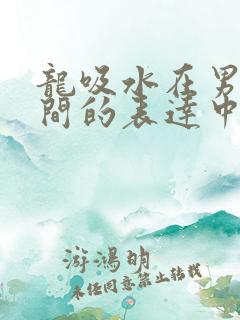 龍吸水在男
間的表達中
游鴻明
未经同意禁止转载